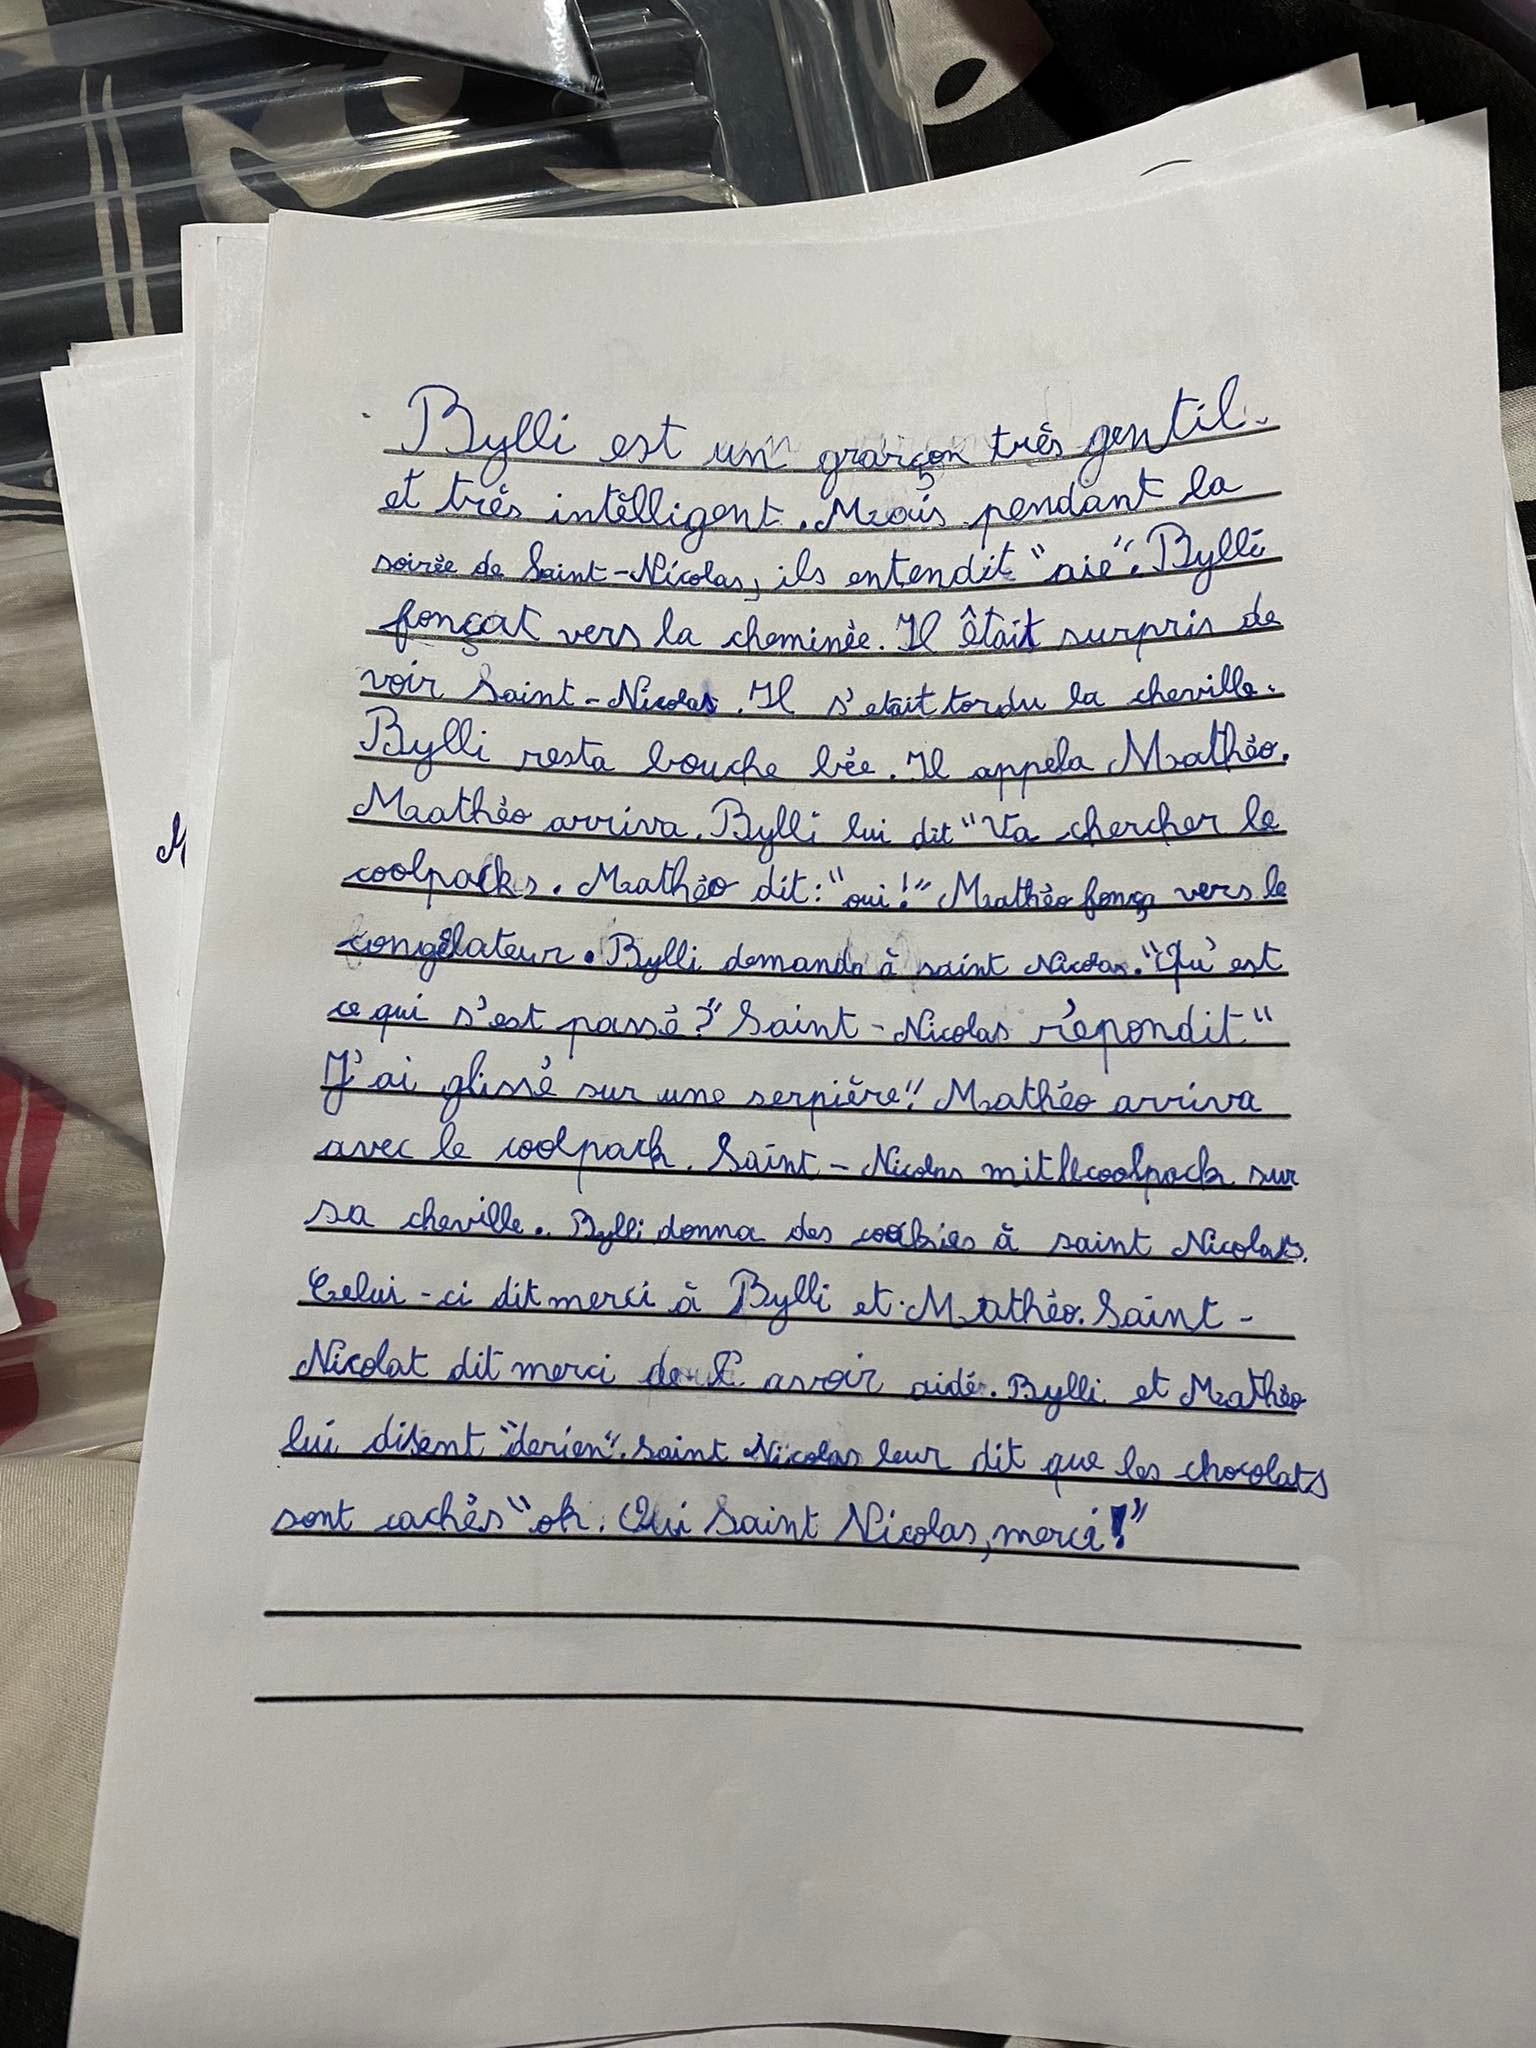 Bylli est un grarçon très gentil.
et très intèlligent. Mais pendant la
soirèe de Saint-Nicolas, ils entendit "aie". Bylli
fonçat vers la cheminèe. Il êtait surpris de
voir Saint-Nicolas. Il s'etait tordu la cheville.
Bylli resta bouche bèe. Il appela Mathèo.
Mathèo arriva. Bylli lui dit "Va chercher le
coolpacks. Mathèo dit: "oui!" Mathèo fonça vers le
congèlateur. Bylli demanda à saint Nicolas. "Qu'est
ce qui s'est passè?" Saint-Nicolas rèpondit "
J'ai glissè sur une serpière". Mathèo arriva
avec le coolpack. Saint-Nicolas mit le coolpack sur
sa cheville. Bylli donna des cookies à saint Nicolas.
Celui-ci dit merci à Bylli et Mathèo. Saint-
Nicolat dit merci de l'avoir aidè. Bylli et Mathèo
lui disent "derien". Saint Nicolas leur dit que les chocolats
sont cachès "ok. Oui Saint Nicolas, merci!"